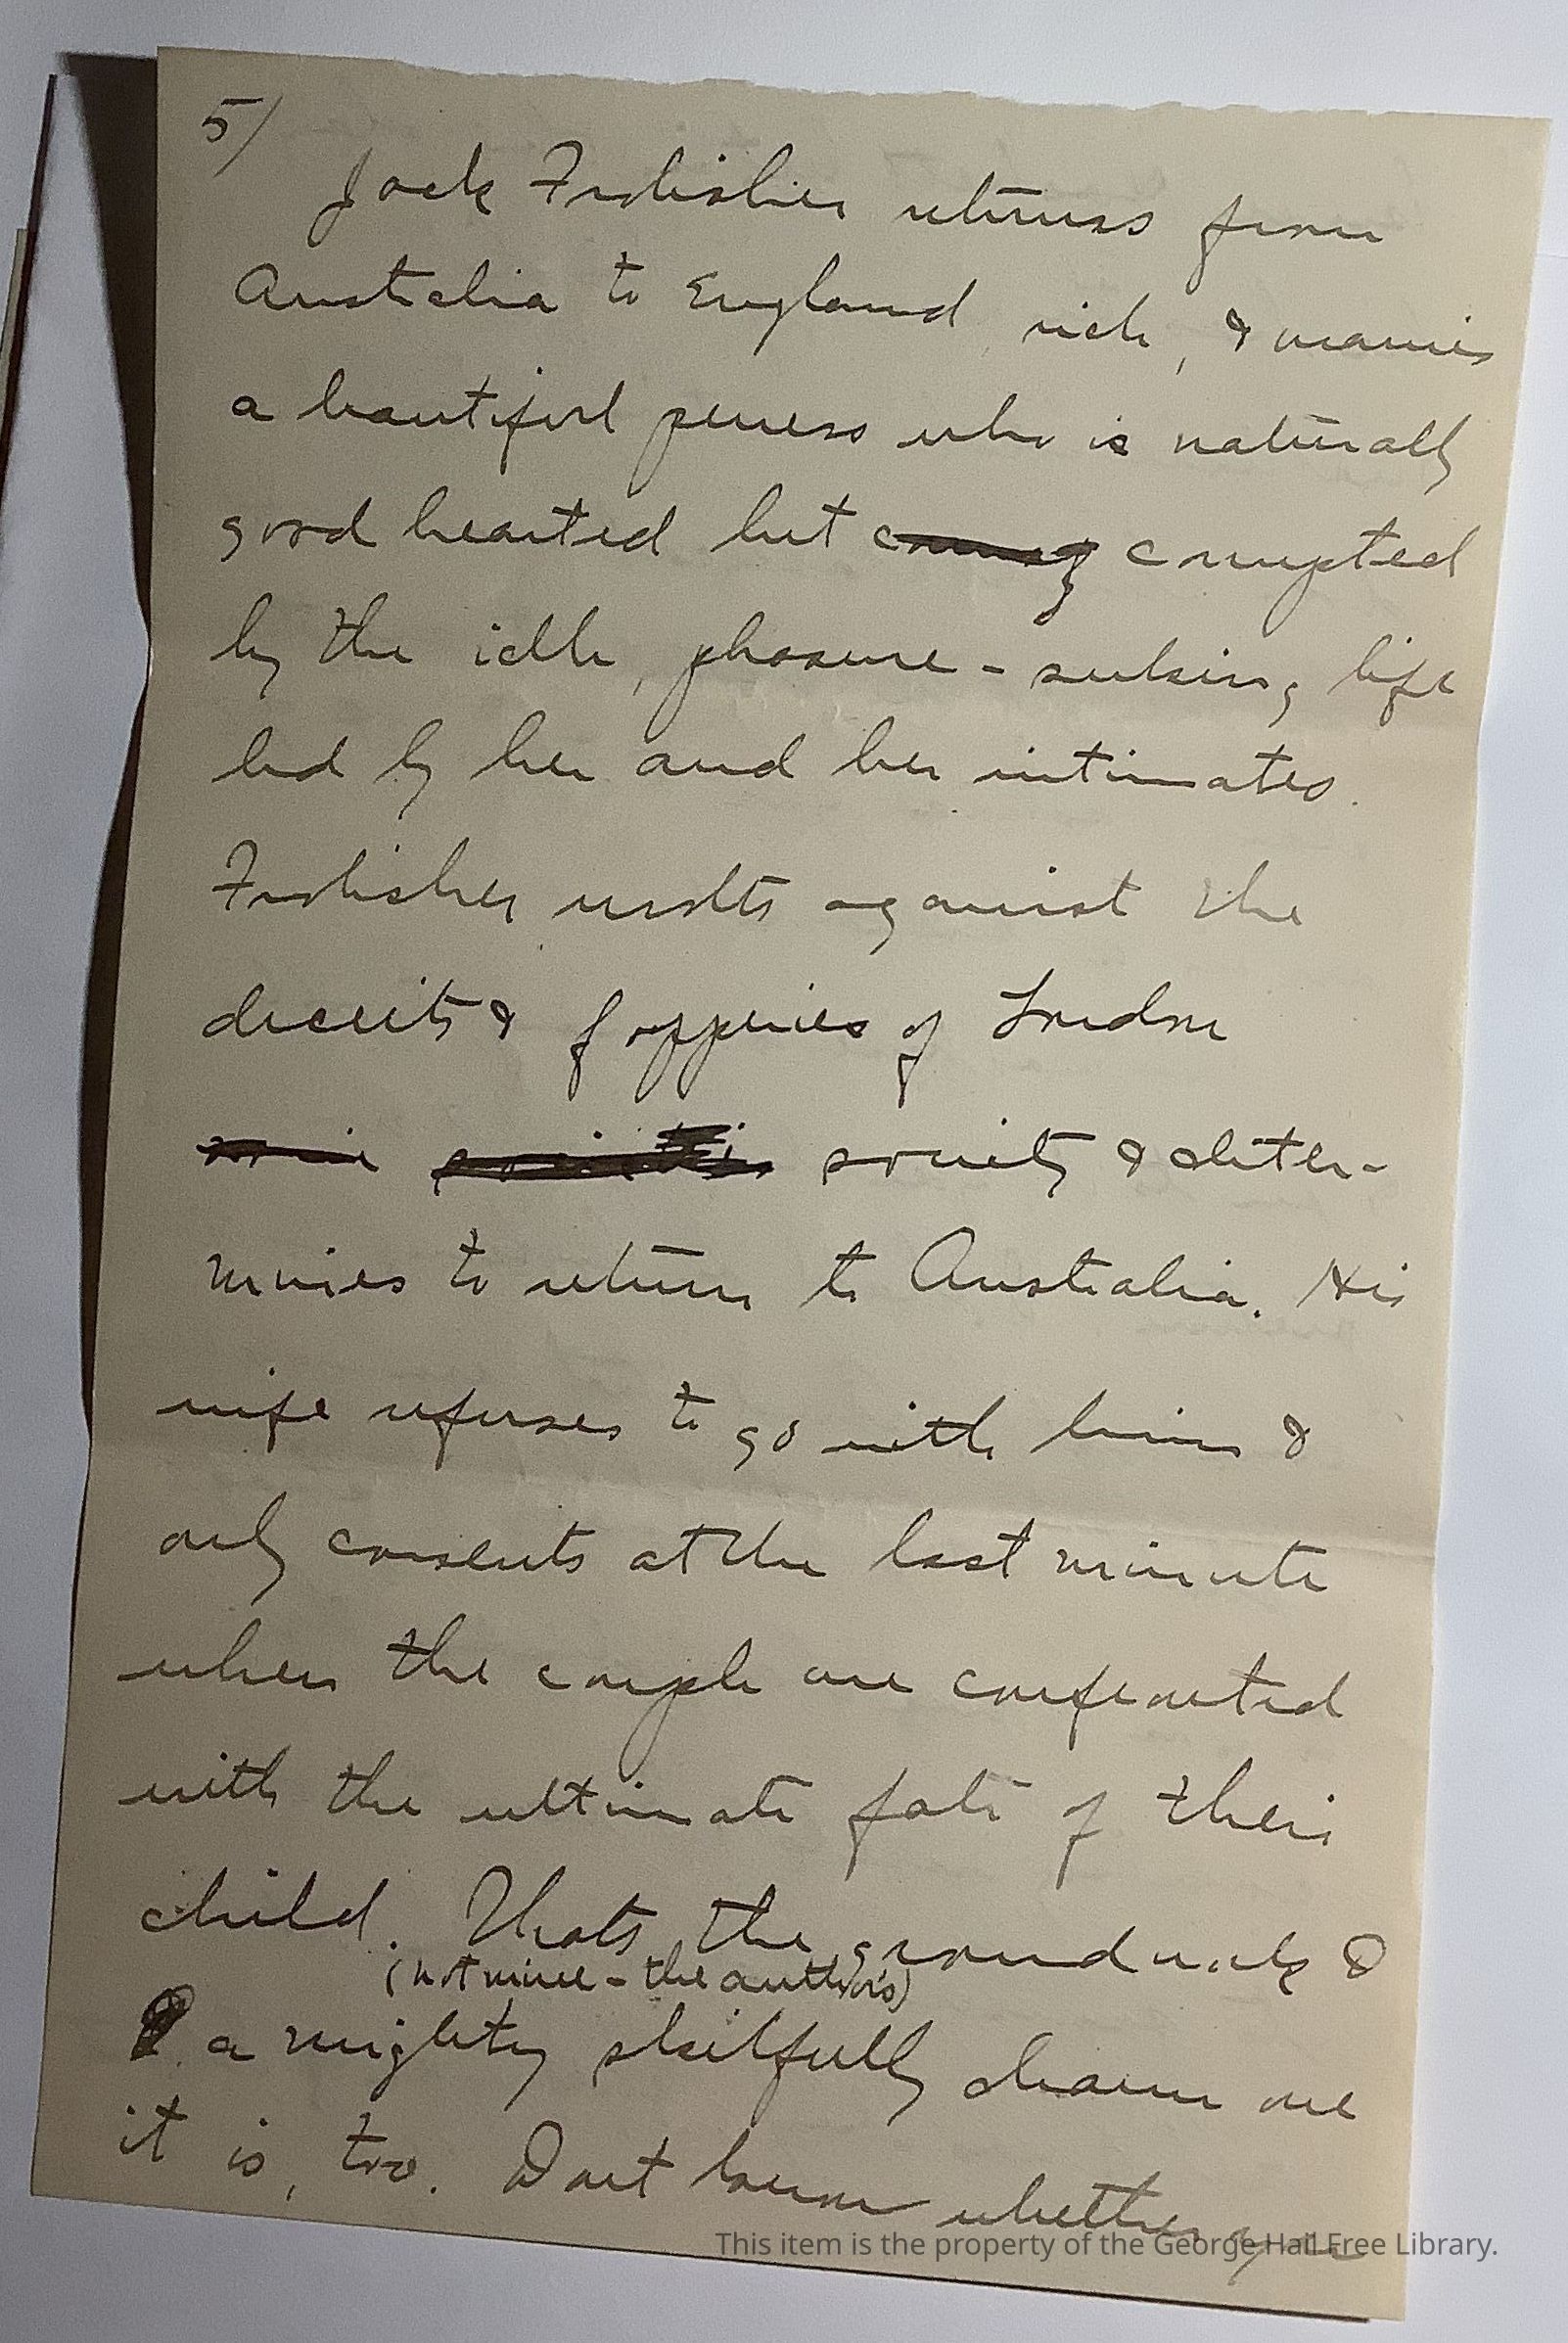 5/
Jack Frobisher returns from
Australia to England, rich, & marries
a beautiful peeress who is naturally
good hearted but corrupted
by the idle, pleasure-seeking life
led by her and her intimates.
Frobisher revolts against the
deceits & fopperies of London
society & deter-
mines to return to Australia. His
wife refuses to go with him &
only consents at the last minute
when the couple are confronted
with the ultimate fate of their
child. Thats the groundwork &
(not mine - the author's)
a mighty skilfully drawn one
it is, too. Dont know whether you
This item is the property of the George Hail Free Library.